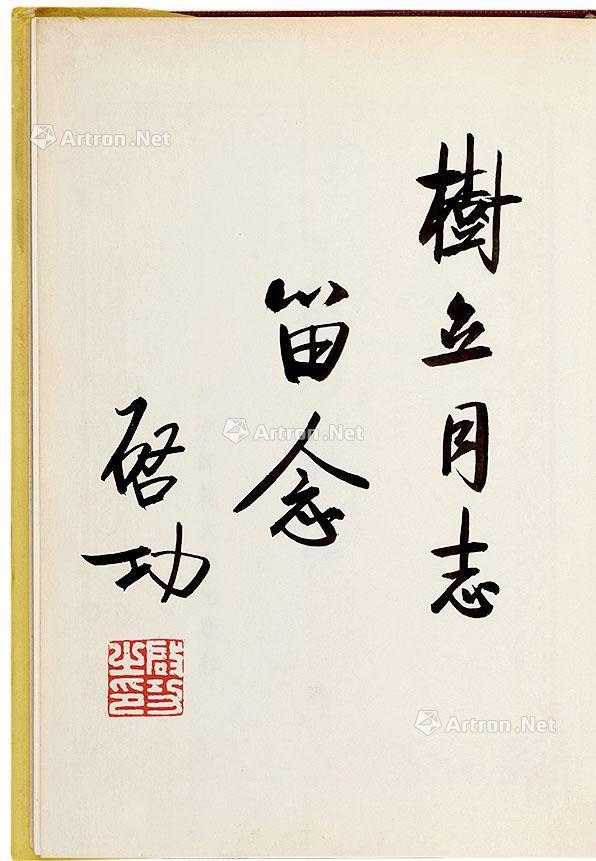 樹立同志
留念
啓功
啓功之印
Artron.Net
Artron.Net
Artron.Net